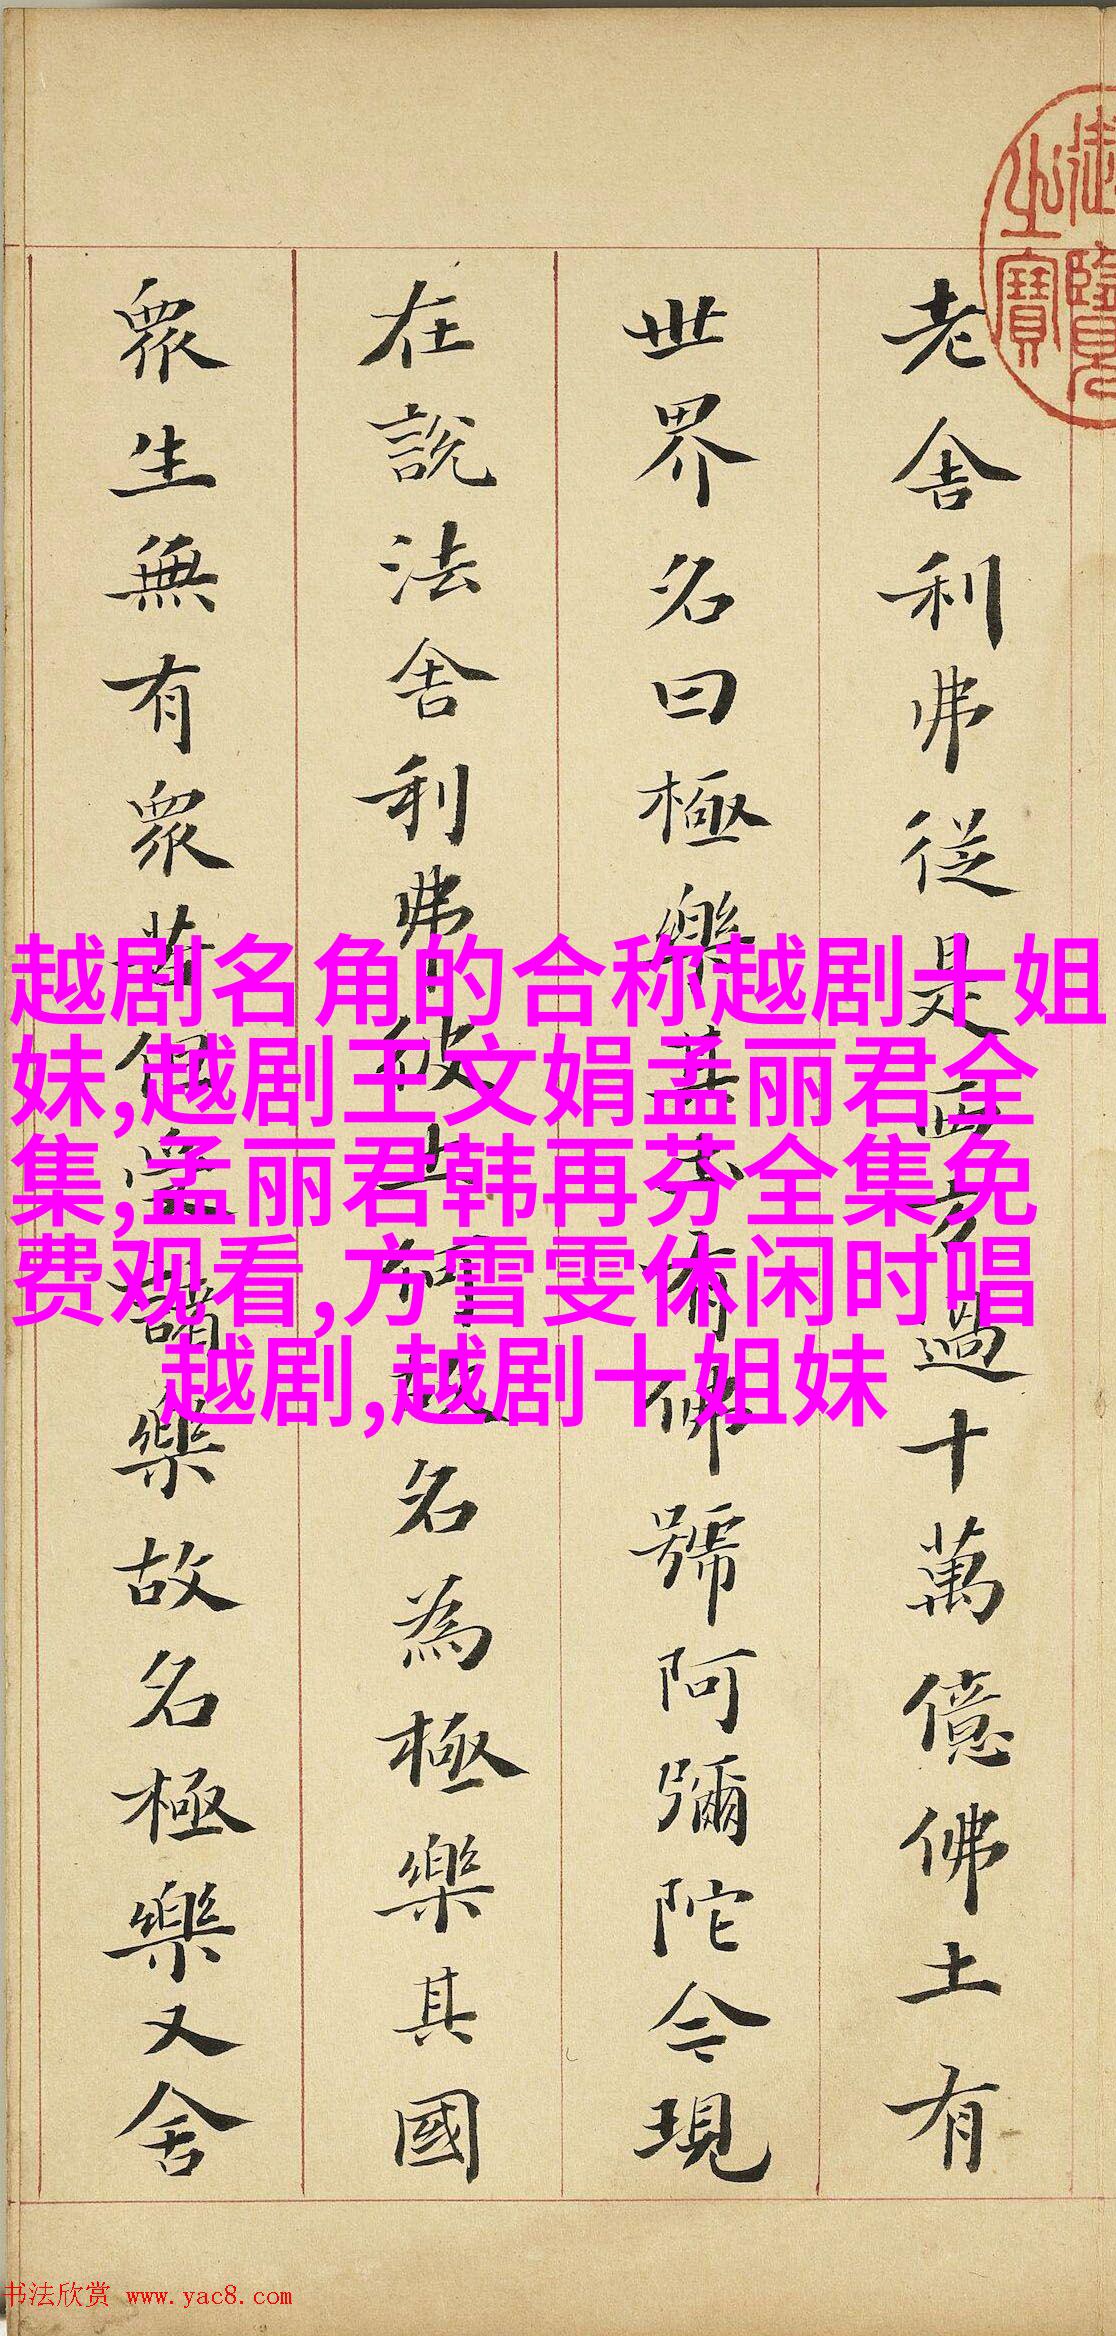 御覽
之寶
老舍利弗從是西方過十萬億佛土有
世界名曰極樂其土有佛號阿彌陀今現
在說法舍利弗彼土何故名為極樂其國
眾生無有眾苦但受諸樂故名極樂又舍
越剧名角的合称越剧十姐
妹,越剧王文娟孟丽君全
集,孟丽君韩再芬全集免
费观看,方雪雯休闲时唱
越剧,越剧十姐妹
书法欣赏 www.yac8.com